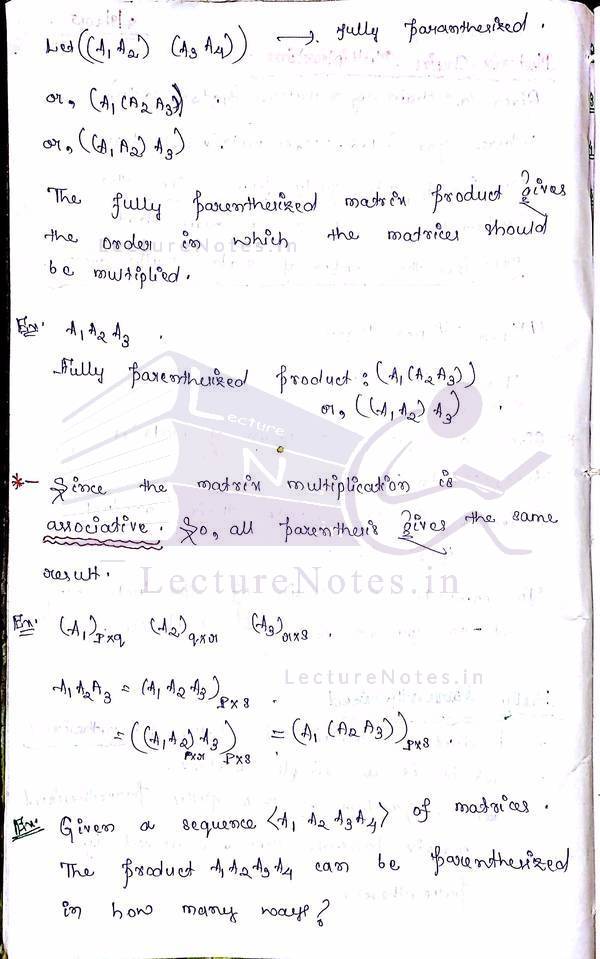 Let ((A1 A2) (A3 A4)) → fully parantherized.
or, (A1 (A2 A3))
or, ((A1 A2) A3)
The fully parenthesized matrix product gives
the order in which the matrices should
be multiplied.
LectureNotes.in
Ex: A1 A2 A3
Fully parenthesized product : (A1 (A2 A3))
or, ((A1 A2) A3)
Lecture
N
*- Since the matrix multiplication is
associative. So, all parenthesis gives the same
result.
LectureNotes.in
Ex: (A1)p×q (A2)q×r (A3)r×s .
LectureNotes.in
A1 A2 A3 = (A1 A2 A3)p×s .
= ((A1 A2)p×r A3)p×s = (A1 (A2 A3))p×s .
Ex: Given a sequence <A1 A2 A3 A4> of matrices.
The product A1 A2 A3 A4 can be parenthesized
in how many ways?